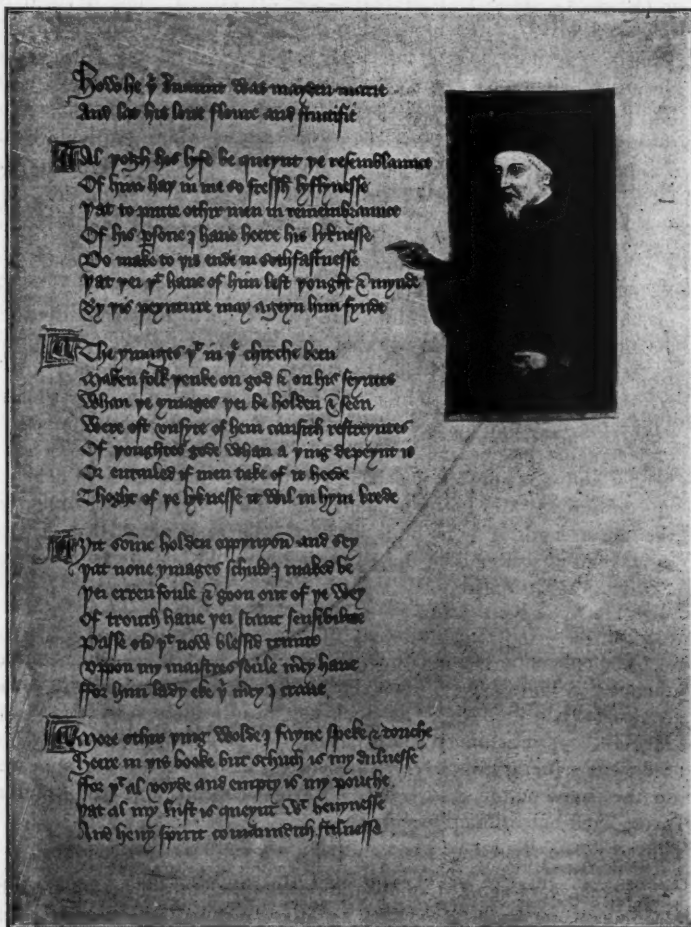 How he yͬ seruaunt was mayden marie
And lat his loue floure and fructifie
Al yogh his lyfe be queynt ye resemblaunce
Of him hay in me so fressh lyflynesse
Yat to putte othir men in remembraunce
Of his ꝑsone I haue heere his lyknesse
Do make to yis ende in sothfastnesse
Yat yei yͭ haue of him lest yought & mynde
By yis peynture may ageyn him fynde
The ymages yͭ in yͤ chirche been
Maken folk yenke on god & on his seyntes
Whan ye ymages yei be holden & seen
Were oft unsyte of hem causith restreyntes
Of youghtes gode whan a ying depeynt is
Or entailed if men take of it heede
Thoght of ye lyknesse it wil in hym brede
Yit some holden oppynyoun and sey
Yat none ymages schuld I maked be
Yei erren foule & goon out of ye wey
Of trouth haue yei scant sensibilite
Passe ouer yͭ now blessid trinite
Uppon my maistres soule mercy haue
ffor him lady eke yi mercy I craue
More othir ying wolde I fayne speke & touche
Heere in yis booke but schuch is my dulnesse
ffor yͭ al voyde and empty is my pouche
Yat al my lust is queynt wͭ heuynesse
And heuy spirit comaundith stilnesse